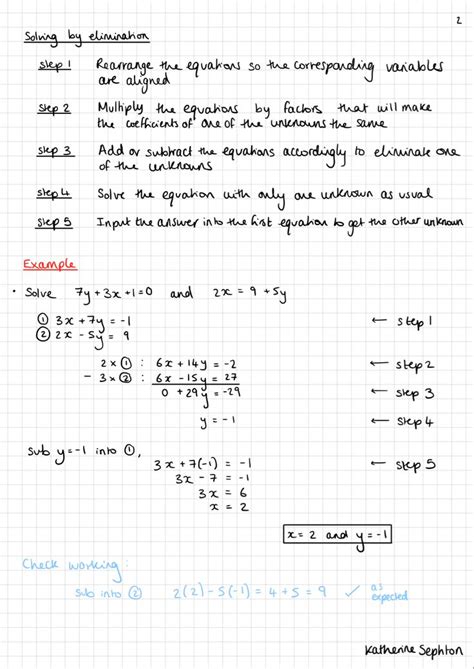 2
Solving by elimination
Step 1 Rearrange the equations so the corresponding variables
are aligned
Step 2 Multiply the equations by factors that will make
the coefficients of one of the unknowns the same
Step 3 Add or subtract the equations accordingly to eliminate one
of the unknowns
Step 4 Solve the equation with only one unknown as usual
Step 5 Input the answer into the first equation to get the other unknown
Example
• Solve 7y + 3x + 1 = 0 and 2x = 9 + 5y
① 3x + 7y = -1 ← Step 1
② 2x - 5y = 9
2 × ① : 6x + 14y = -2 ← Step 2
- 3 × ② : 6x - 15y = 27
0 + 29y = -29 ← Step 3
y = -1 ← Step 4
Sub y = -1 into ①,
3x + 7(-1) = -1 ← Step 5
3x - 7 = -1
3x = 6
x = 2
x = 2 and y = -1
Check working:
Sub into ② 2(2) - 5(-1) = 4 + 5 = 9 ✓ as
expected
Katherine Sephton